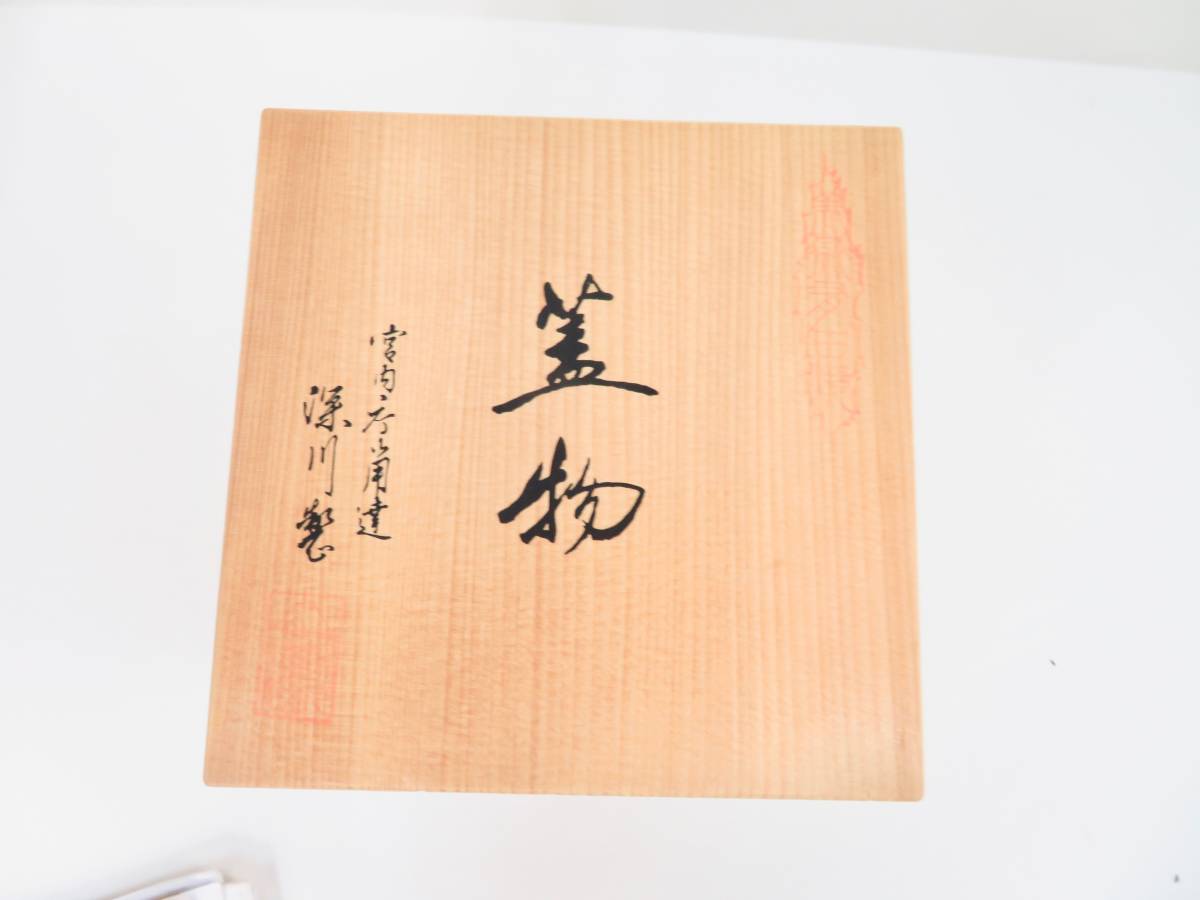 蓋物
宮内庁御用達
深川製